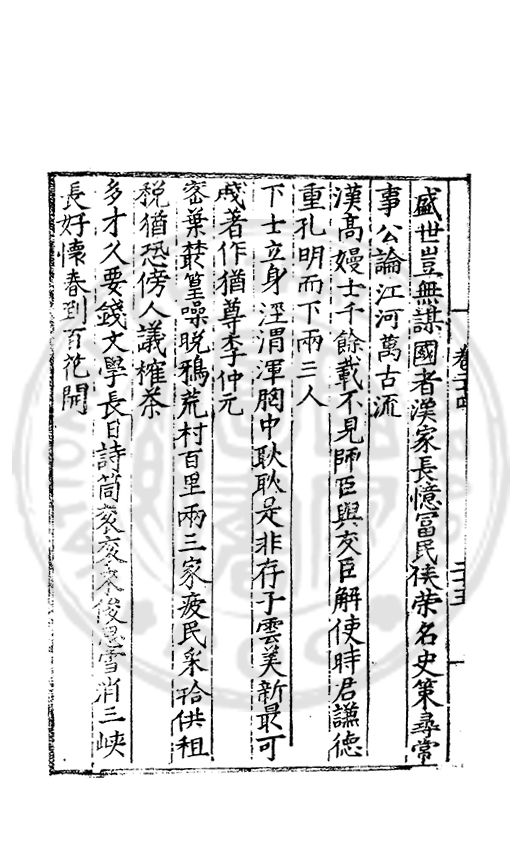 盛世豈無謀國者漢家長憶冨民侯榮名史策尋常
事公論江河萬古流
漢髙嫚士千餘載不見師臣與友臣解使時君謙德
重孔明而下兩三人
下士立身涇渭渾胸中耿耿是非存子雲美新最可
戚著作猶尊李仲元
宻葉叢篁噪晚鴉荒村百里兩三家疲民采拾供租
稅猶恐傍人議榷茶
多才久要錢文學長日詩筒衮衮來俊思雪消三峽
長好懷春到百花開
卷二十四
二十五